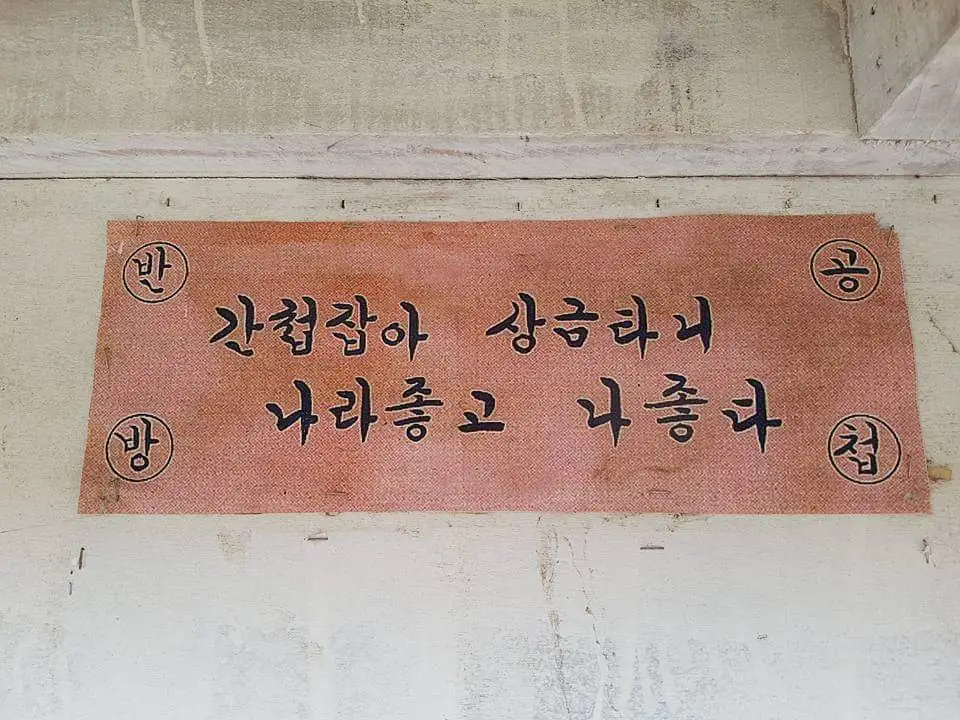 반 공
간첩잡아 상금타니
나라좋고 나좋다
방 첩